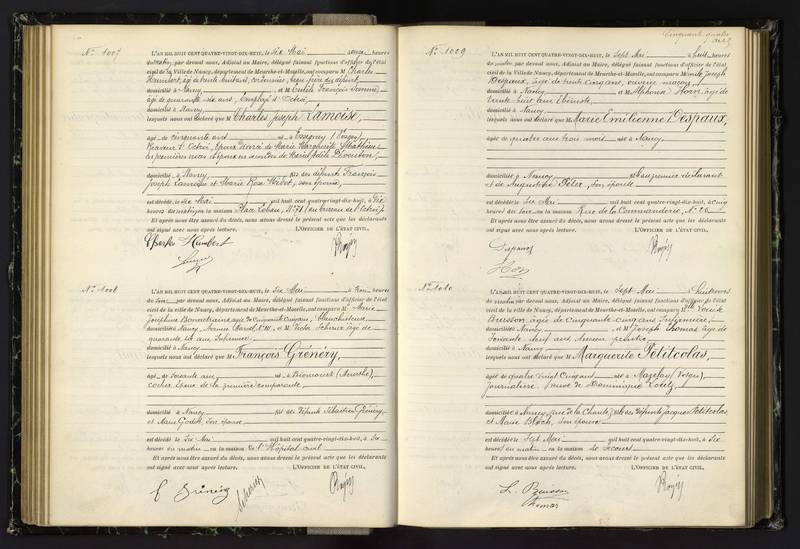 Cinquante quatre
N° 1007
L'AN MIL HUIT CENT QUATRE-VINGT-DIX-HUIT, le Six Mai à onze heures
du matin, par devant nous, Adjoint au Maire, délégué faisant fonctions d'officier de l'état
civil de la Ville de Nancy, département de Meurthe-et-Moselle, ont comparu M Charles
Humbert, âgé de trente huit ans, cordonnier, beau-frère du défunt,
domicilié à Nancy, et M Emile François
âgé de quarante six ans, Employé d'Octroi,
domicilié à Nancy
lesquels nous ont déclaré que M Charles Joseph Lamoise,
âgé de cinquante ans né à Essegney (Vosges)
d'Octroi, Epoux divorcé de Marie Marguerite
en premières noces Epoux en secondes de Marie Adèle
domicilié à Nancy fils des défunts François
Joseph Lamoise et Marie Rose, son épouse,
est décédé le six Mai mil huit cent quatre-vingt-dix-huit, à Dix
heures du matin, en la maison Place Loban, N° 71 (au bureau de l'Octroi).
Et après nous être assuré du décès, nous avons dressé le présent acte que les déclarants
ont signé avec nous après lecture. L'OFFICIER DE L'ÉTAT CIVIL,
Humbert
N° 1008
L'AN MIL HUIT CENT QUATRE-VINGT-DIX-HUIT, le Six Mai à trois heures
du soir, par devant nous, Adjoint au Maire, délégué faisant fonctions d'officier de l'état
civil de la ville de Nancy, département de Meurthe-et-Moselle, ont comparu Me Marie
Joséphine, âgée de Cinquante Cinq ans, blanchisseuse,
domiciliée à Nancy, et M Victor, âgé de
quarante six ans Infirmier
domicilié à Nancy
lesquels nous ont déclaré que M François Grénéry,
âgé de soixante ans né à Bioncourt (Meurthe),
cocher Epoux de la première comparante,
domicilié à Nancy fils des défunts Sébastien Grénéry
et Marie Godot, son épouse
est décédé le Six Mai mil huit cent quatre-vingt-dix-huit, à Six
heures du matin en la maison de l'Hôpital civil
Et après nous être assuré du décès, nous avons dressé le présent acte que les déclarants
ont signé avec nous après lecture. L'OFFICIER DE L'ÉTAT CIVIL,
N° 1009
L'AN MIL HUIT CENT QUATRE-VINGT-DIX-HUIT, le Sept Mai à huit heures
du matin par devant nous, Adjoint au Maire, délégué faisant fonctions d'officier de l'état
civil de la Ville de Nancy, département de Meurthe-et-Moselle, ont comparu M Joseph
Despaux, âgé de trente cinq ans, ouvrier maçon,
domicilié à Nancy et M Alphonse Horn, âgé de
trente huit ans Ebéniste,
domicilié à Nancy
lesquels nous ont déclaré que Marie Emilienne Despaux,
âgée de quatre ans trois mois née à Nancy,
domiciliée à Nancy du premier déclarant
et de Augustine Péter, son épouse
est décédée le Six Mai mil huit cent quatre-vingt-dix-huit, à cinq
heures du soir, en la maison Rue de la Commanderie, N° 26
Et après nous être assuré du décès, nous avons dressé le présent acte que les déclarants
ont signé avec nous après lecture. L'OFFICIER DE L'ÉTAT CIVIL,
Despaux
Horn
N° 1010
L'AN MIL HUIT CENT QUATRE-VINGT-DIX-HUIT, le Sept Mai à huit heures
du matin par devant nous, Adjoint au Maire, délégué faisant fonctions d'officier de l'état
civil de la ville de Nancy, département de Meurthe-et-Moselle, ont comparu Mlle Louise
Buisson, âgée de Cinquante cinq ans Infirmière,
domiciliée à Nancy, et M Joseph Thomas âgé de
Soixante neuf ans,
domicilié à Nancy
lesquels nous ont déclaré que Marguerite Petitcolas,
âgée de quatre vingt cinq ans née à Mazelay (Vosges),
journalière, Veuve de Dominique
domiciliée à Nancy, fille des défunts Jacques Petitcolas
et Marie Bloch, son épouse
est décédée le Sept Mai mil huit cent quatre-vingt-dix-huit, à Six
heures du matin en la maison de Secours
Et après nous être assuré du décès, nous avons dressé le présent acte que les déclarants
ont signé avec nous après lecture. L'OFFICIER DE L'ÉTAT CIVIL,
L. Buisson
Thomas